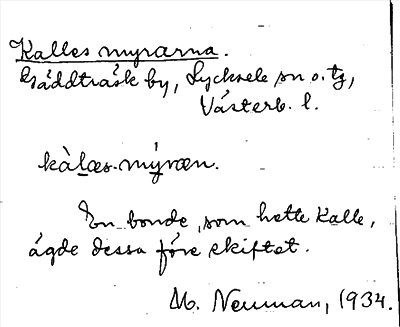 Kalles myrarna.
Gäddträsk by, Lycksele sn o. tg,
Västerb. l.
kàlæs-mýræn.
En bonde, som hette Kalle,
ägde dessa före skiftet.
M. Neuman, 1934.